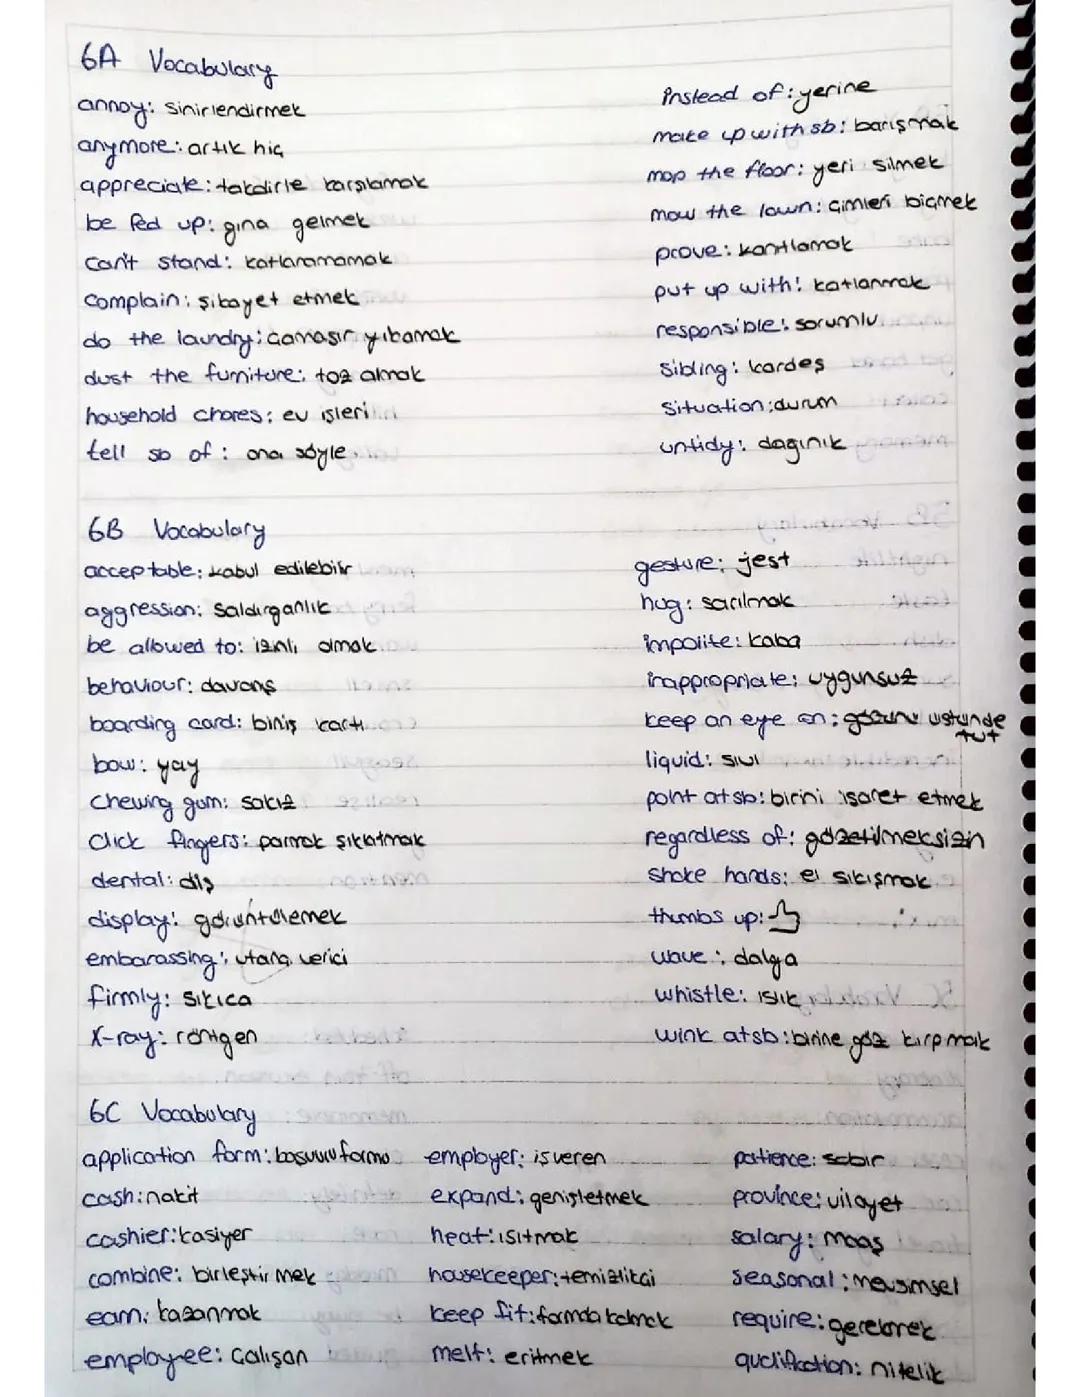 6A Vocabulary
annoy: sinirlendirmek
anymore: artık hiç
appreciate: takdirle karşılamak
be fed up: gına gelmek
can't stand: katlanamamak
complain: şikayet etmek
do the laundry: çamaşır yıkamak
dust the furniture: toz almak
household chores: ev işleri
tell sb of: ona söyle
instead of: yerine
make up with sb: barışmak
mop the floor: yeri silmek
mow the lawn: çimleri biçmek
prove: kanıtlamak
put up with: katlanmak
responsible: sorumlu
sibling: kardeş
situation: durum
untidy: dağınık
6B Vocabulary
acceptable: kabul edilebilir
aggression: saldırganlık
be allowed to: izinli olmak
behaviour: davranış
boarding card: biniş kartı
bow: yay
chewing gum: sakız
click fingers: parmak şıklatmak
dental: diş
display: görüntülemek
embarassing: utanç verici
firmly: sıkıca
X-ray: röntgen
gesture: jest
hug: sarılmak
impolite: kaba
inappropriate: uygunsuz
keep an eye on: gözünü üstünde
tut
liquid: sıvı
point at sb: birini işaret etmek
regardless of: gözetilmeksizin
shake hands: el sıkışmak
thumbs up:
wave: dalga
whistle: ıslık
wink at sb: birine göz kırpmak
6C Vocabulary
application form: başvuru formu
cash: nakit
cashier: kasiyer
combine: birleştirmek
earn: kazanmak
employee: çalışan
employer: işveren
expand: genişletmek
heat: ısıtmak
housekeeper: temizlikçi
keep fit: formda kalmak
melt: eritmek
patience: sabır
province: vilayet
salary: maaş
seasonal: mevsimsel
require: gerekmek
qualification: nitelik